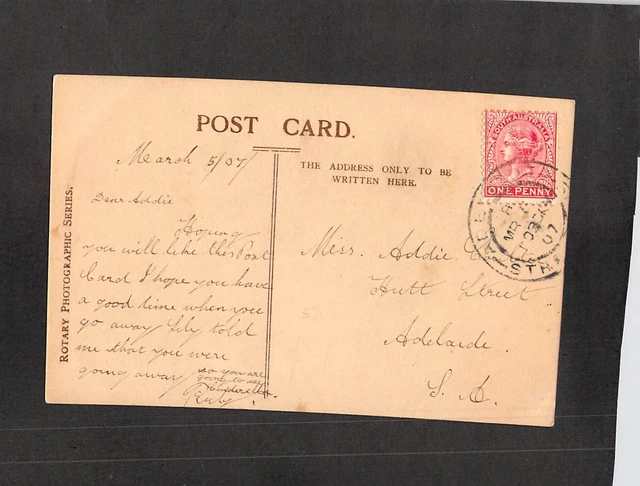 POST CARD.
March 5/07
THE ADDRESS ONLY TO BE
WRITTEN HERE.
ROTARY PHOTOGRAPHIC SERIES.
Dear Addie
Hoping
you will like this Post
Card I hope you have
a good time when you
go away Lily told
me that you were
going away
so you are
going to see
Cinderella
Ruby.
SOUTH AUSTRALIA
ONE PENNY
MR
07
STH
Miss. Addie
Hutt Street
Adelaide.
S. A.